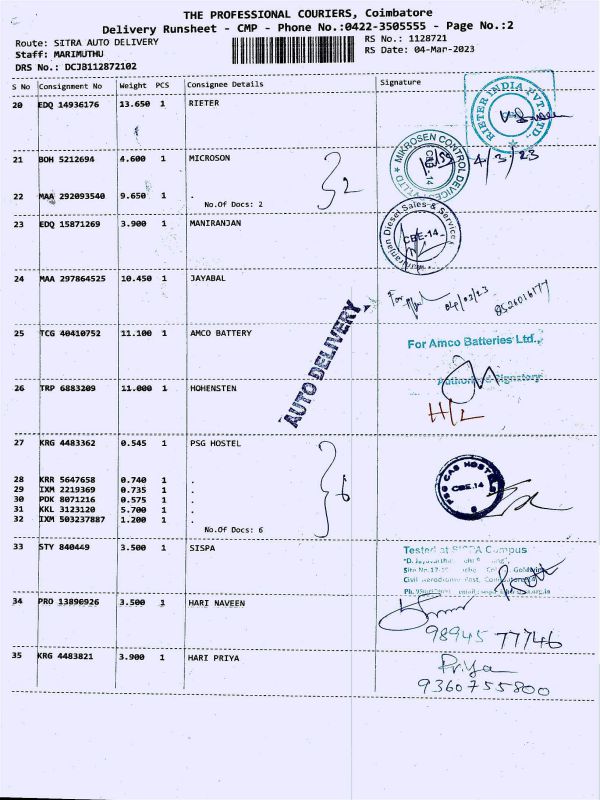 THE PROFESSIONAL COURIERS, Coimbatore
Delivery Runsheet - CMP - Phone No.:0422-3505555 - Page No.:2
Route: SITRA AUTO DELIVERY
Staff: MARIMUTHU
DRS No.: DCJB112872102
RS No.: 1128721
RS Date: 04-Mar-2023
S No Consignment No Weight PCS Consignee Details Signature
20 EDQ 14936176 13.650 1 RIETER
RIETER INDIA PVT. LTD.,
21 BOH 5212694 4.600 1 MICROSON
MIKROSEN CONTROL DEVICES PVT LTD
14
4/3/23
2
22 MAA 292093540 9.650 1 .
No.Of Docs: 2
23 EDQ 15871269 3.900 1 MANIRANJAN
Maniranjan Diesel Sales & Service
CBE-14
24 MAA 297864525 10.450 1 JAYABAL
For
04/03/23
8526016177
AUTO DELIVERY
25 TCG 40410752 11.100 1 AMCO BATTERY
For Amco Batteries Ltd.,
Authorised Signatory
26 TRP 6883209 11.000 1 HOHENSTEN
H/L
27 KRG 4483362 0.545 1 PSG HOSTEL
PSG CAS HOSTELS
CBE.14
28 KRR 5647658 0.740 1 .
29 IXM 2219369 0.735 1 .
30 PDK 8071216 0.575 1 .
31 KKL 3123120 5.700 1 .
32 IXM 503237887 1.200 1 .
6
No.Of Docs: 6
33 STY 840449 3.500 1 SISPA
Tested at SISPA Campus
Civil Aerodrome Post,
34 PRO 13890926 3.500 1 HARI NAVEEN
98945 77746
35 KRG 4483821 3.900 1 HARI PRIYA
Priya
9360755800